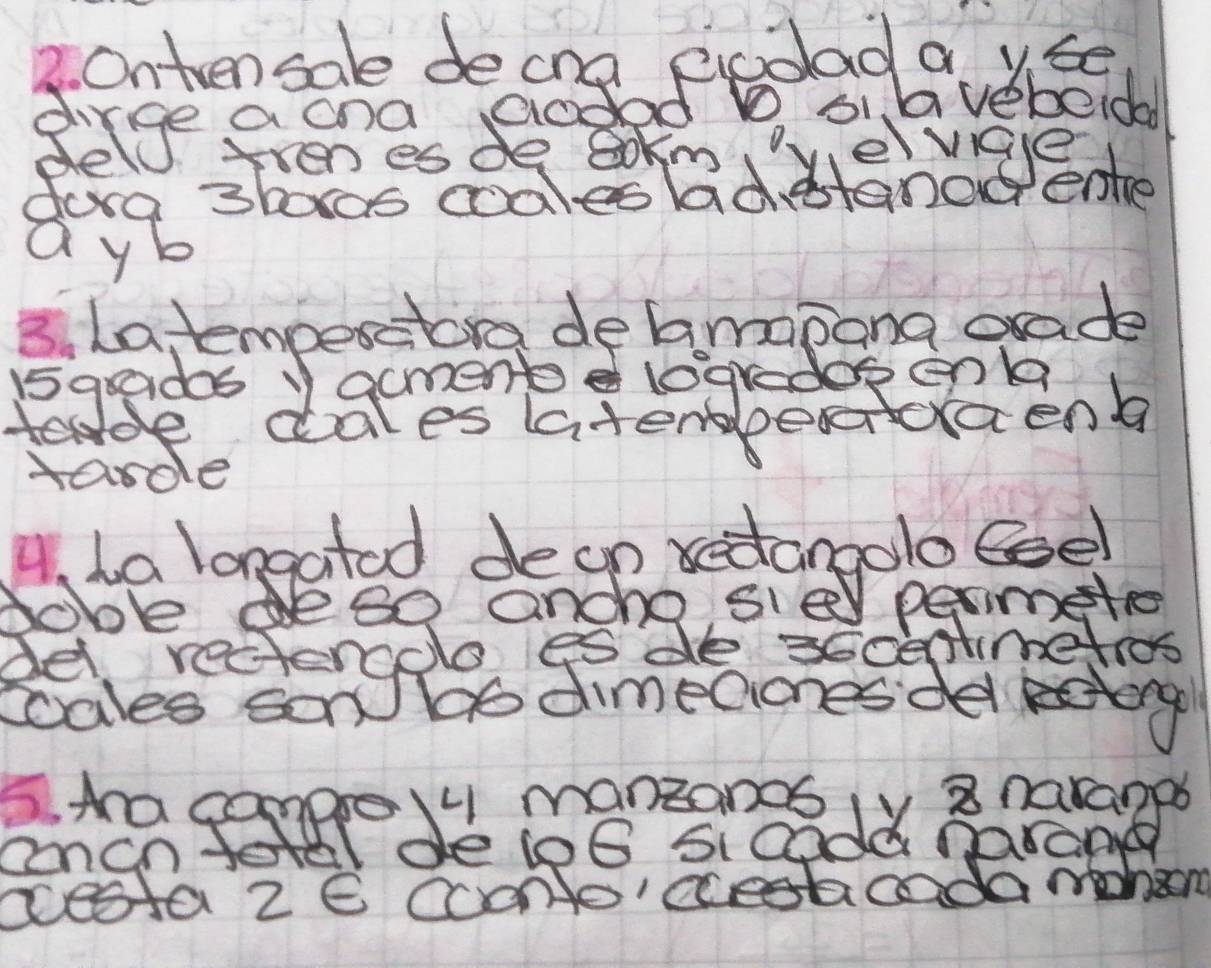 2. On tren sale de cna ciodad a y se
dirige a cna ciodad b si la velocidad
del tren es de 80km, y el viaje
dora 3 horas coal es la distancia entre
a y b
3. La temperatora de la mañana orade
15 grados y acmento 10 grados en la
tarde coal es la temperatora en la
tarde
4. La longatod de cn rectangolo es el
doble de so ancho si el perimetro
del rectangolo es de 36 centimetros
coales son las dimeciones del rectangol
5. Ana compro 4 manzanas y 3 naranjas
con cn total de 10€ si cada naranja
ccesta 2 € ccanto ccesta cada manzana